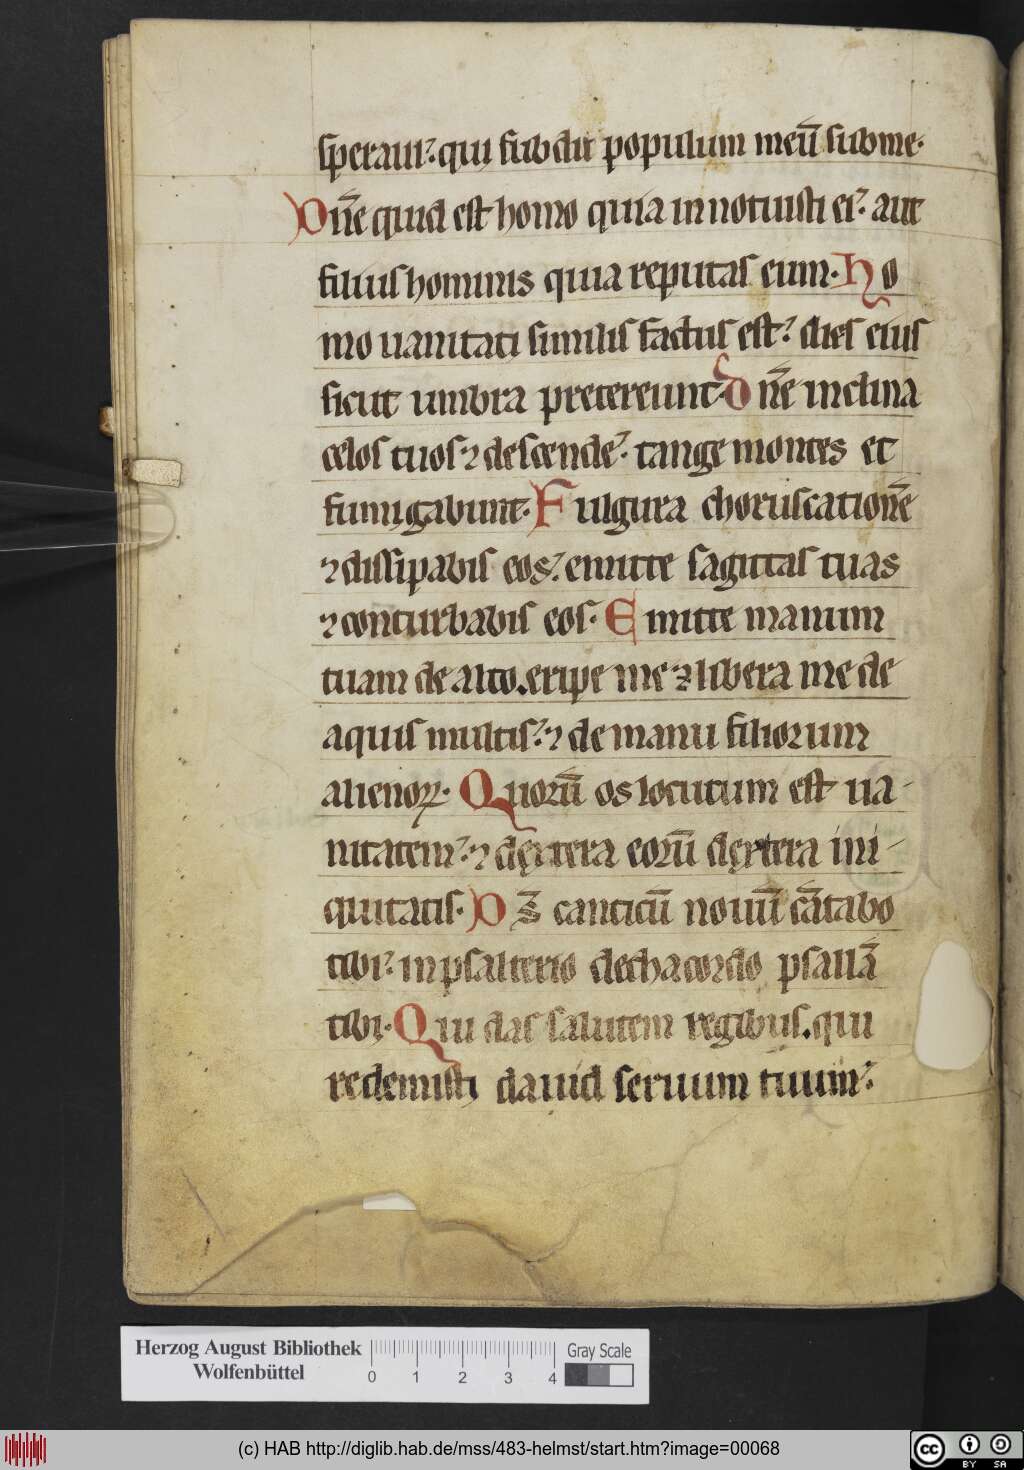 speraui: qui subdit populum meū sub me.
Dn̄e quid est homo quia innotuisti ei: aut
filius hominis quia reputas eum. Ho
mo uanitati similis factus est: dies eius
sicut umbra pretereunt. Dn̄e inclina
celos tuos ⁊ descende: tange montes et
fumigabunt. Fulgura choruscationē
⁊ dissipabis eos: emitte sagittas tuas
⁊ conturbabis eos. Emitte manum
tuam de alto. eripe me ⁊ libera me de
aquis multis: ⁊ de manu filiorum
alienoꝝ. Quorū os locutum est ua-
nitatem: ⁊ dextera eorū dextera ini-
quitatis. Ds̄ canticū nouū cātabo
tibi: in psalterio dechacordo psallā
tibi. Qui das salutem regibus. qui
redemisti dauid seruum tuum:
Herzog August Bibliothek
Wolfenbüttel
0 1 2 3 4
Gray Scale
(c) HAB http://diglib.hab.de/mss/483-helmst/start.htm?image=00068
cc BY SA